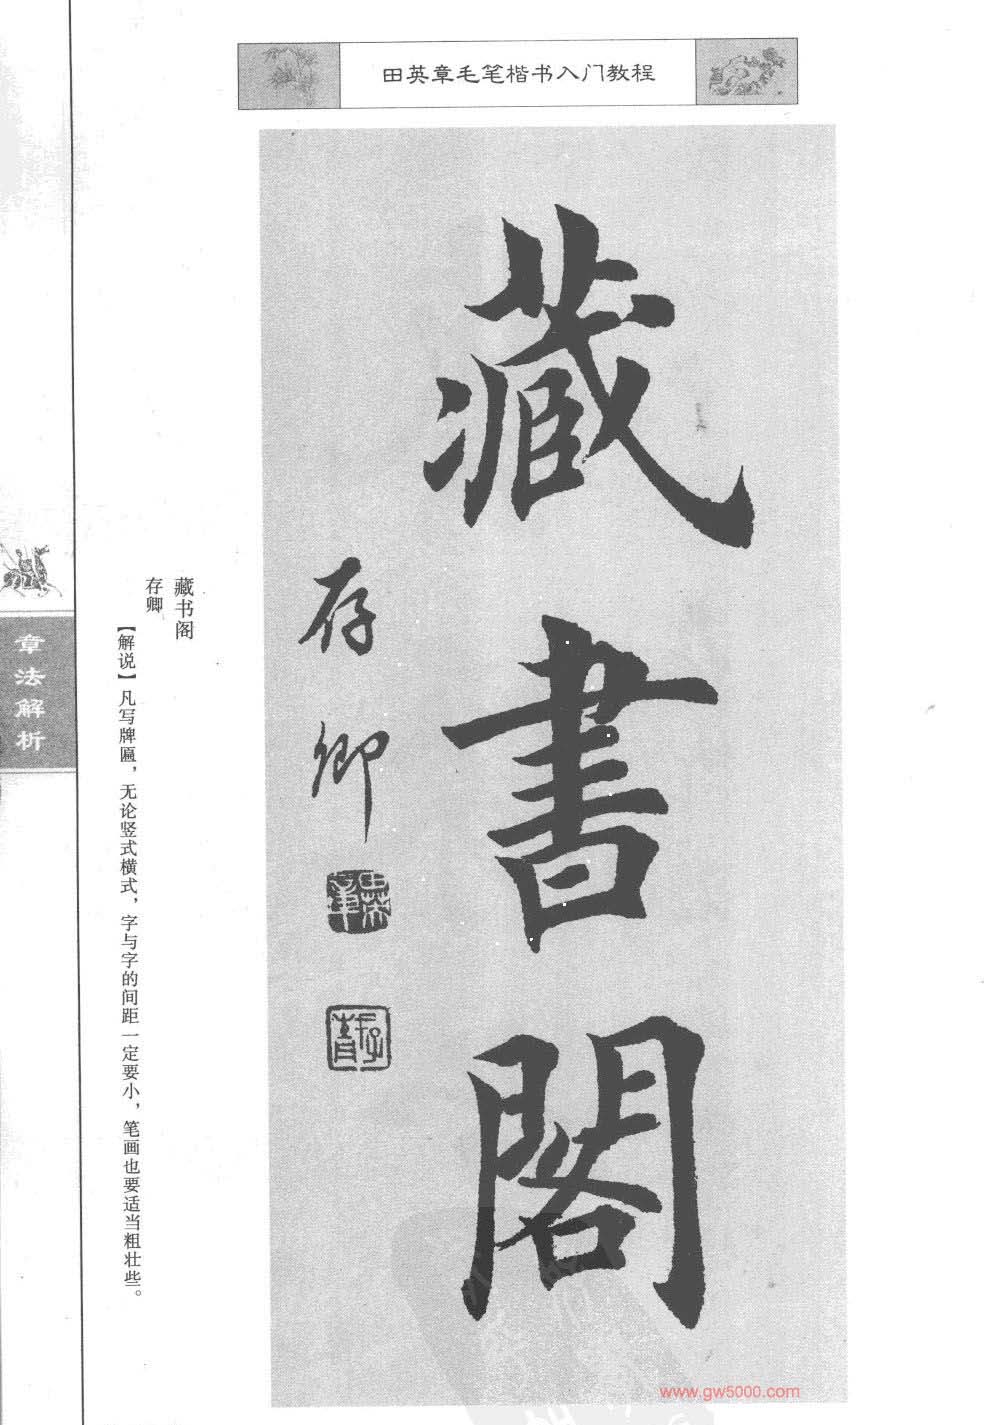 田英章毛笔楷书入门教程
藏書閣
存卿
藏书阁
存卿
【解说】凡写牌匾，无论竖式横式，字与字的间距一定要小，笔画也要适当粗壮些。
章法解析
www.gw5000.com